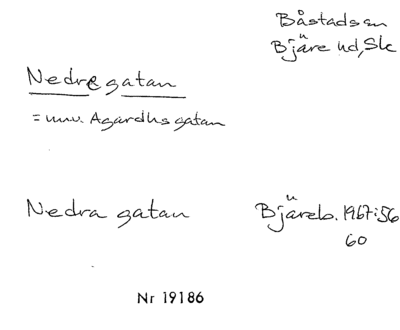 Båstads sn
Bjäre hd, Sk
Nedre gatan
= nuv. Agardhsgatan
Nedra gatan Bjäreb. 1967:56
60
Nr 19186